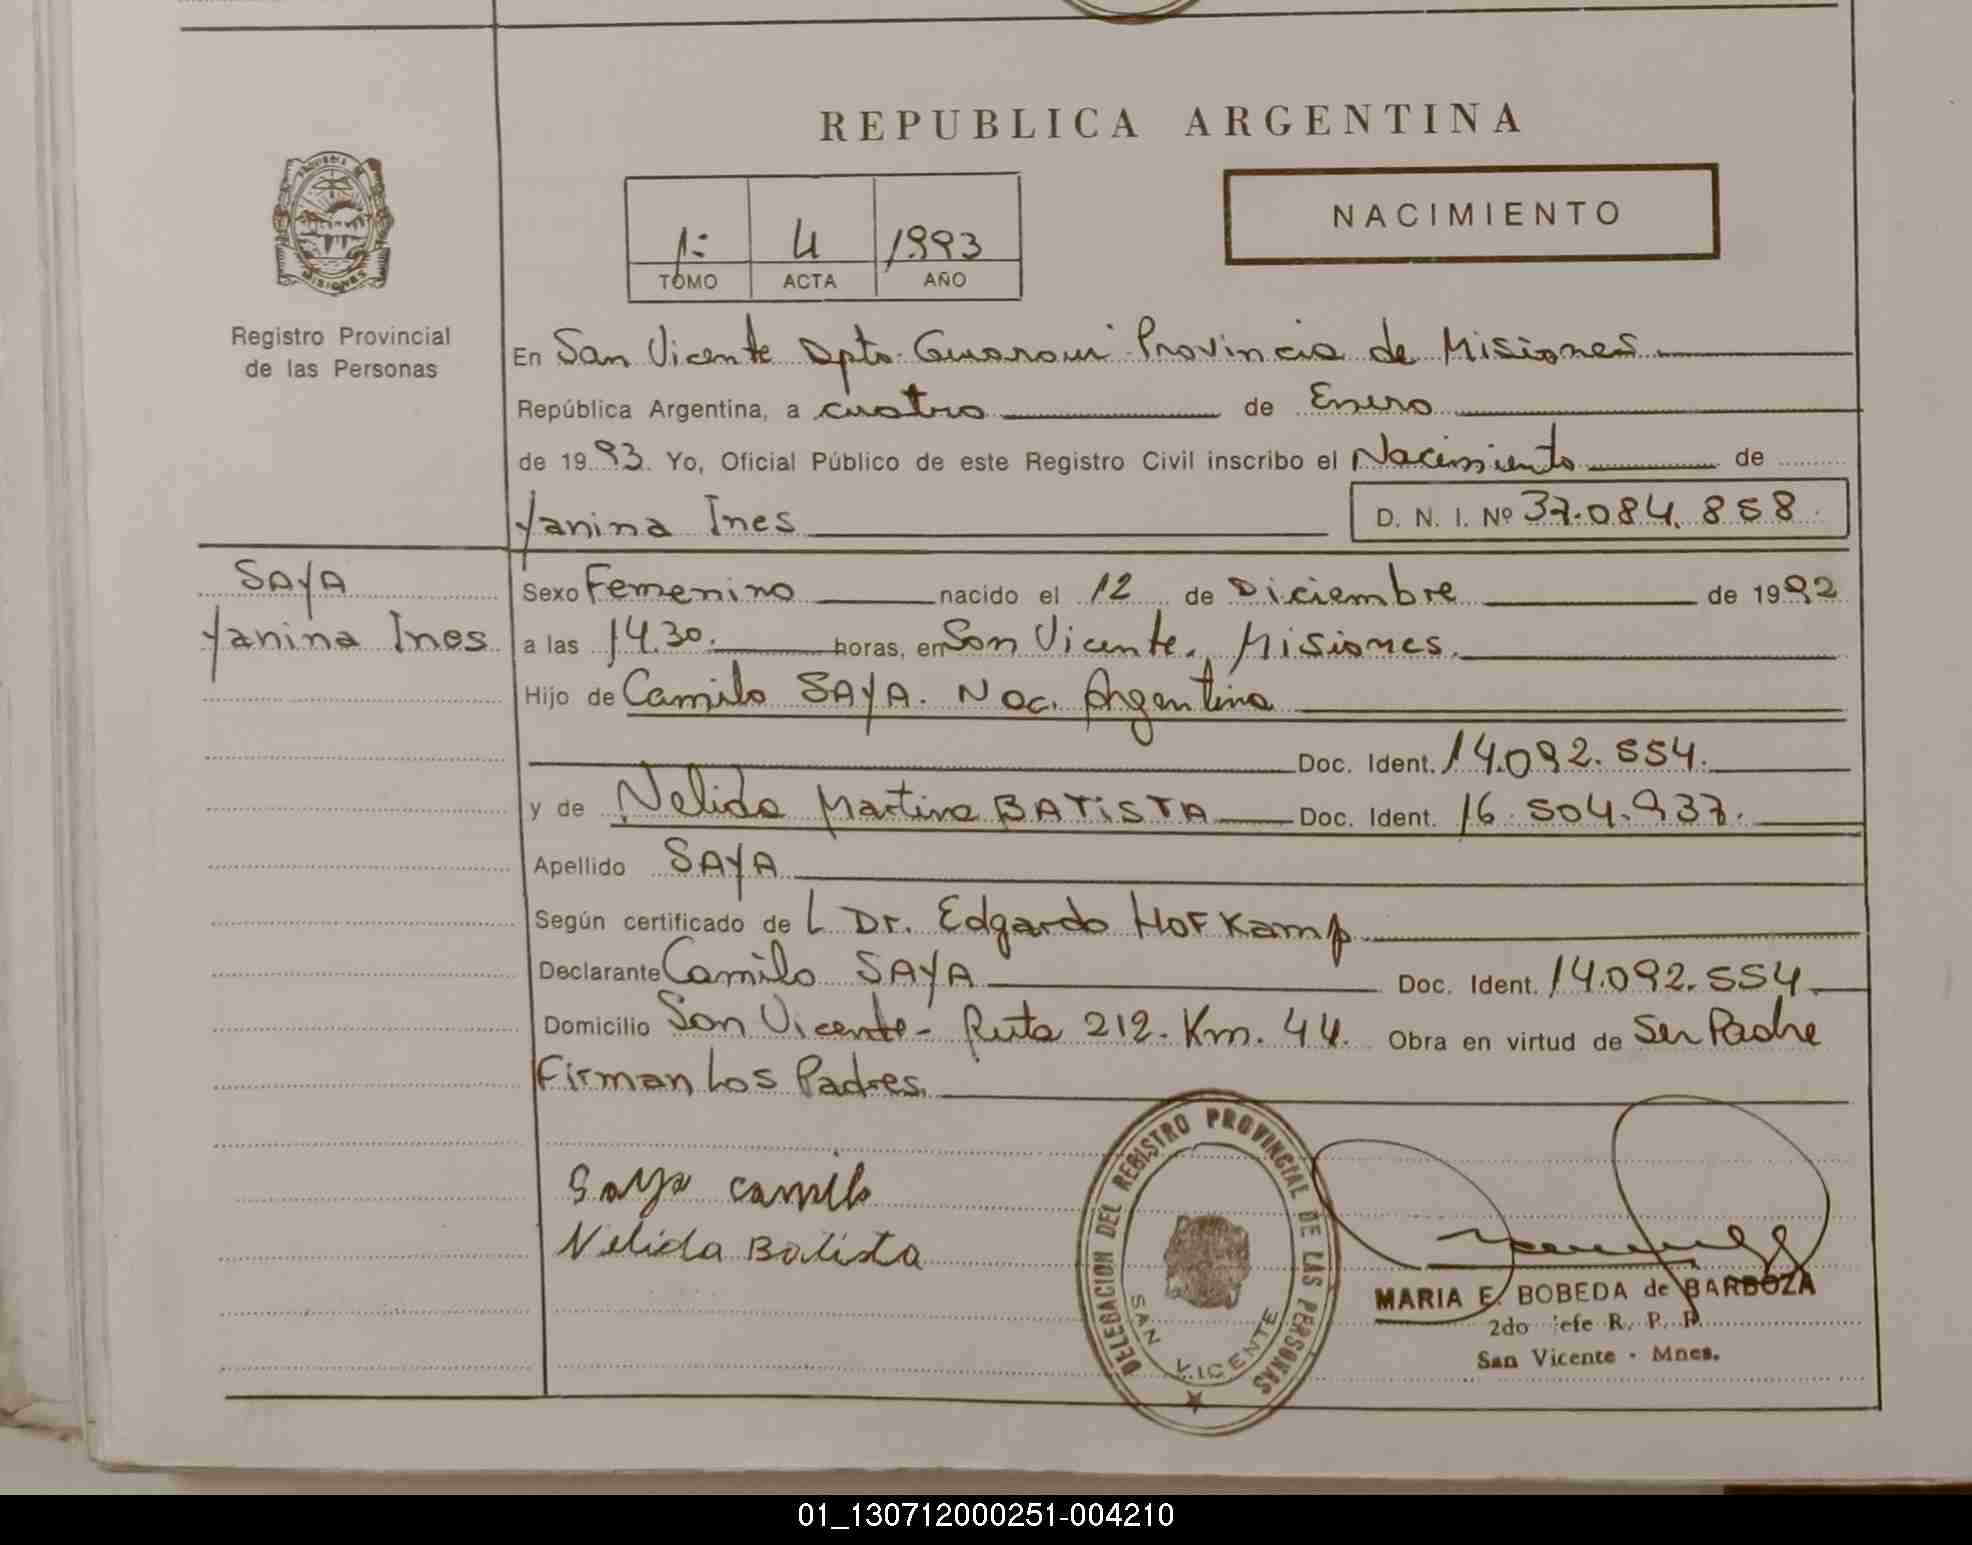 REPUBLICA ARGENTINA
NACIMIENTO
1= 4 1993
TOMO ACTA AÑO
Registro Provincial
de las Personas
En San Vicente Dpto. Guarani Provincia de Misiones
República Argentina, a cuatro de Enero
de 1993. Yo, Oficial Público de este Registro Civil inscribo el Nacimiento de
Yanina Ines D. N. I. Nº 37.084.858
SAYA
Yanina Ines
Sexo Femenino nacido el 12 de Diciembre de 1992
a las 14.30. horas, en San Vicente. Misiones.
Hijo de Camilo SAYA. Nac. Argentina
Doc. Ident. 14.092.554.
y de Nelida Martina BATISTA Doc. Ident. 16.504.937.
Apellido SAYA
Según certificado de L Dr. Edgardo HOFKamp
Declarante Camilo SAYA Doc. Ident. 14.092.554
Domicilio San Vicente - Ruta 212. Km. 44. Obra en virtud de Ser Padre
Firman Los Padres.
Saya camilo
Nelida Batista
DELEGACION DEL REGISTRO PROVINCIAL DE LAS PERSONAS
SAN VICENTE
MARIA E. BOBEDA de BARBOZA
2do jefe R. P. P.
San Vicente - Mnes.
01_130712000251-004210